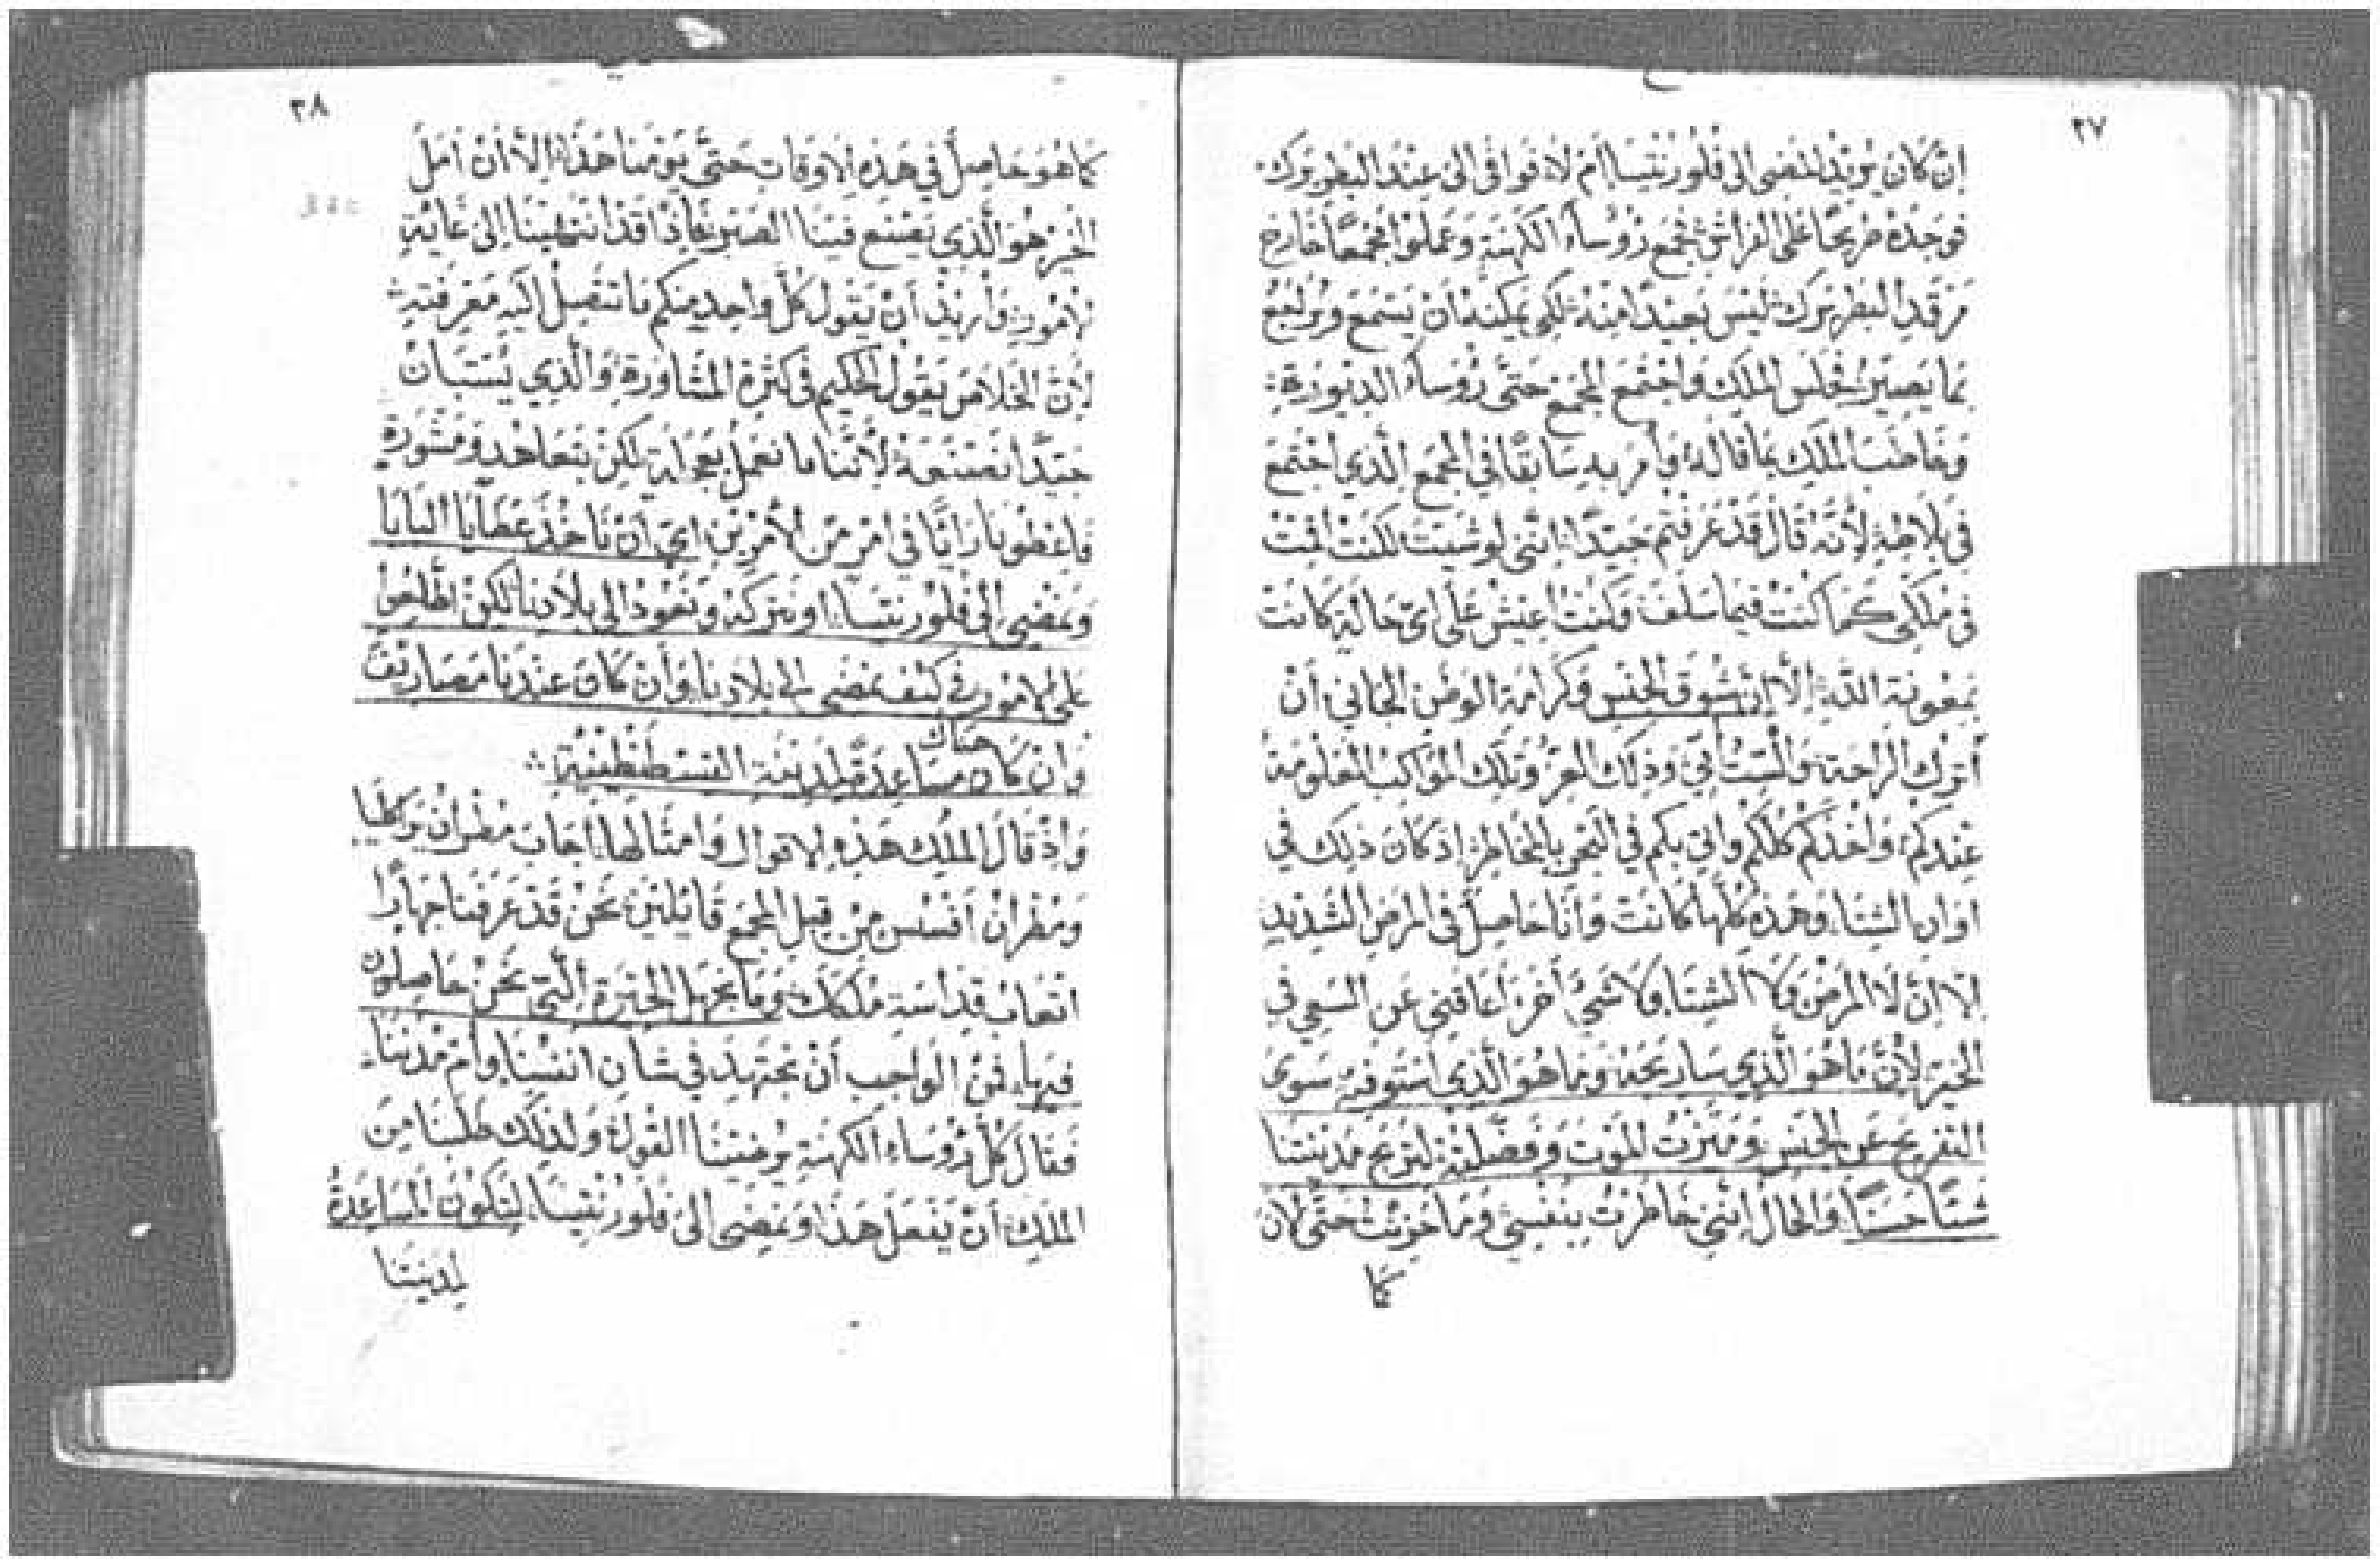 ٢٧
إن كان يريد المضى إلى فلورنتيسا أم لا فوافى الى عند البطريرك
فوجده طريحًا على الفراش فجمع رؤساء الكهنة وعملوا مجمعًا خارج
مرقد البطريرك ليس بعيدًا منه لكي يمكنه ان يسمع ويراجع
بما يصير فجلس الملك واجتمع المجمع حتى رؤساء الدينورة
وخاطب الملك بما قاله وأمر به سابقًا في المجمع الذي اجتمع
في بلاطه لأنه قال قد عرفتم جيدًا انني لو شيت لكنت اقمت
في ملكي كما كنت فيما سلف وكنت اعيش على اي حالة كانت
بمعونة الله إلا إن شوق الجنس وكرامة الوطن الجاني أن
أترك الراحة والستات وذلك العز وتلك المواكب المعلومة
عندكم وأخذتكم كلكم واتي بكم في البحر بالمخاطر إذ كان ذلك في
اوان الشتاء وهذه كلها كانت وأنا حاصل في المرض الشديد
إلا ان لا المرض ولا الشتا ولا شي أخر أعاقني عن السعي في
الخير لأن ما هو الذي سار بحه وما هو الذي استوفيه سوى
التفريج عن الجنس وميزت الموت وفضلته لتربح مدينتنا
شتًا حسنًا والحال إنني خاطرت بنفسي وما حزنت حتى لان
كما
٢٨
كما هو حاصل في هذه الاوقات حتى يومنا هذا إلا أن أمل
الخير هو الذي يصنع فينا الصبر فإذا قد انتهينا إلى غاية
الامور وأريد أن يقول كل واحد منكم ما تتصل اليه معرفته
لان الخلاص يقول الحكيم في كثرة المشاورة والذي يستبان
جيدًا نصنعه لأننا ما نعمل بعجلة لكن بتعاهد ومشورة
فاعطونا رايًا في امر من الأمرين اي ان نأخذ عطايا البابا
ونمضي إلى فلورنتسا او نتركه ونعود الى بلادنا لكن اطلعوا
على الامور في كيف نمضي الى بلادنا وأن كان عندنا مصاريف
هناك
وان كان مساعدة لمدينة القسطنطينية
واذ قال الملك هذه الاقوال وامثالها اجاب مطران يركليا
ومطران أفسس من قبل المجمع قائلين نحن قد عرفنا جهارًا
اتعاب قداسة ملكك وما نجهل الحيرة التي نحن حاصلون
فيها فمن الواجب أن نجتهد في شان انفسنا وأم مدننا
فقال كل رؤساء الكهنة يرضينا القول ولذلك طلبنا من
الملك أن يفعل هذا ونمضي الى فلورنتيسا لتكون المساعدة
لمدينتنا